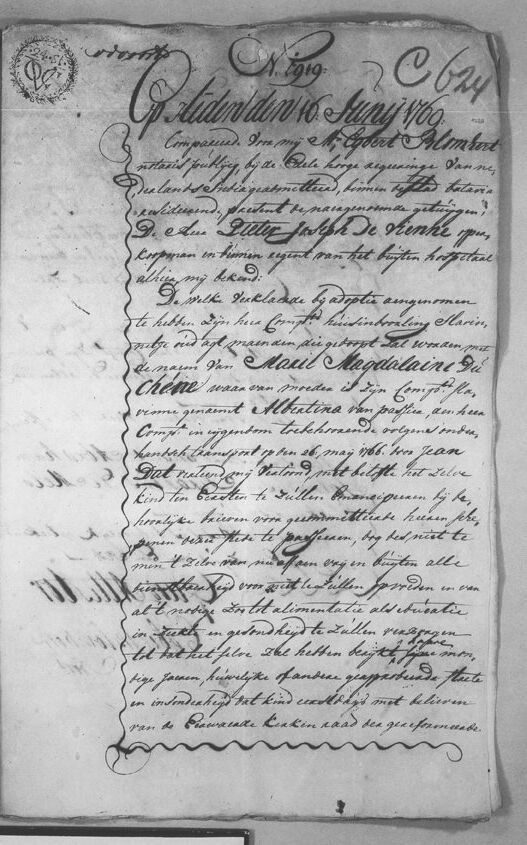 N: 1919:
C 624
Op Huden den 16 Junij 1766.
Compareerde Voor mij Mr. Egbert Blomhert
notaris publicq bij de Edele hooge regeeringe van ne-
derlands India geadmitteerd, binnen de stad batavia
resideerende, present de naergenoemde getuijgen;
De heer Pieter Joseph De Vienne opper
koopman en binnen regent van het buijten hospitaal
alhier, mij bekend;
De welke verklaarde bij adoptie aengenomen
te hebben Zijn heer Compts. huijsinboorling Slavin-
netje oud agt maenden die gedoopt zal worden met
de naem van Maril Magdalaine Du
Chêne waar van moeder is Zijn Compts. sla-
vinne genaemt Albertina van passier, den heer
Compt. in eijgendom toebehoorende volgens onder-
handsch transport op den 26. maij 1766. door Jean
Dat verleend mij vertoond, met belofte het zelve
kind ten Eersten te zullen Emancipeeren bij be-
hoorlijke brieven voor gecommitteerde heeren sche-
penen dezer stede te passeeren, dog des niet te
min 't zelve van nu af aen vrij en buijten alle
dienstbaarheijd voor niet te zullen en van
al 't nodige Zoo tot alimentatie als educatie
in Ziekte en gesondheijd te zullen verzorgen
tot dat het selve zal hebben bereijkt hare mon-
dige Jaeren, huwelijke of andere geapprobeerde staete
en insonderheijd dat kind eerstdaegs met believen
van de Eerwaarde Kerken raad der gereformeerde